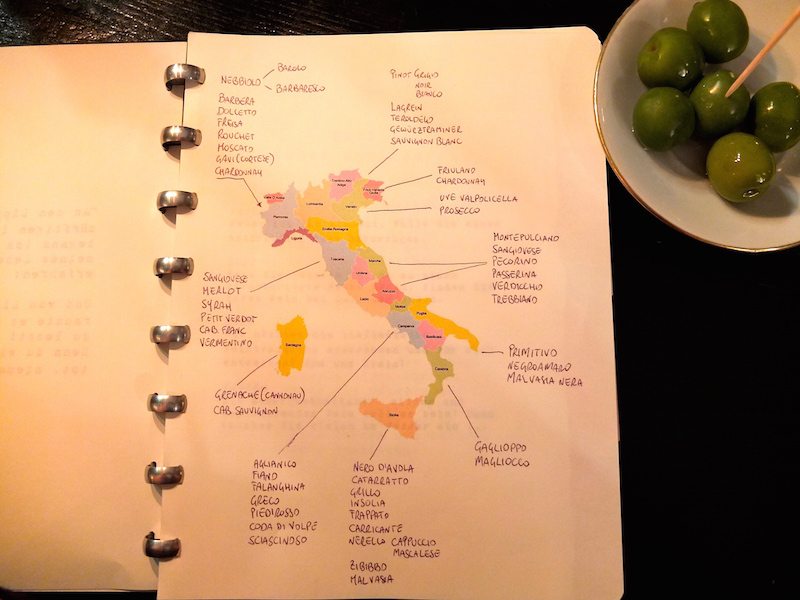 NEBBIOLO
BAROLO
BARBARESCO
BARBERA
DOLCETTO
FREISA
ROUCHET
MOSCATO
GAVI (CORTESE)
CHARDONNAY
PINOT GRIGIO
NOIR
BIANCO
LAGREIN
TEROLDEGO
GEWÜRZTRAMINER
SAUVIGNON BLANC
FRIULANO
CHARDONNAY
UVE VALPOLICELLA
PROSECCO
MONTEPULCIANO
SANGIOVESE
PECORINO
PASSERINA
VERDICCHIO
TREBBIANO
Valle D'Aosta
Piemonte
Liguria
Lombardia
Trentino Alto
Adige
Veneto
Friuli Venezia
Giulia
Emilia Romagna
Toscana
Marche
Umbria
Lazio
Abruzzo
Molise
Campania
Puglia
Basilicata
Calabria
Sicilia
Sardegna
SANGIOVESE
MERLOT
SYRAH
PETIT VERDOT
CAB. FRANC
VERMENTINO
GRENACHE (CANNONAU)
CAB. SAUVIGNON
PRIMITIVO
NEGROAMARO
MALVASIA NERA
GAGLIOPPO
MAGLIOCCO
AGLIANICO
FIANO
FALANGHINA
GRECO
PIEDIROSSO
CODA DI VOLPE
SCIASCINOSO
NERO D'AVOLA
CATARRATTO
GRILLO
INSOLIA
FRAPPATO
CARRICANTE
NERELLO CAPPUCCIO
MASCALESE
ZIBIBBO
MALVASIA